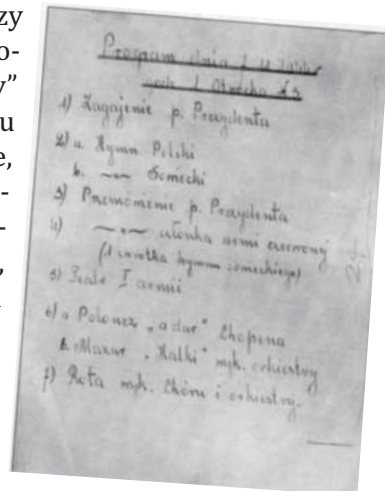 zy
o-
y”
u
e,
-
-
,
Program dnia
1) Zagajenie p. Prezydenta
2) a. Hymn Polski
b. —„— Sowiecki
3) Przemówienie p. Prezydenta
4) —„— członka armi czerwonej
(1 zwrotka hymnu sowieckiego)
5) Teatr I armii
6) a Polonez „a dur” Chopina
b. Mazur „Halki” wyk. orkiestry
7) Rota wyk. Chóru i orkiestry.